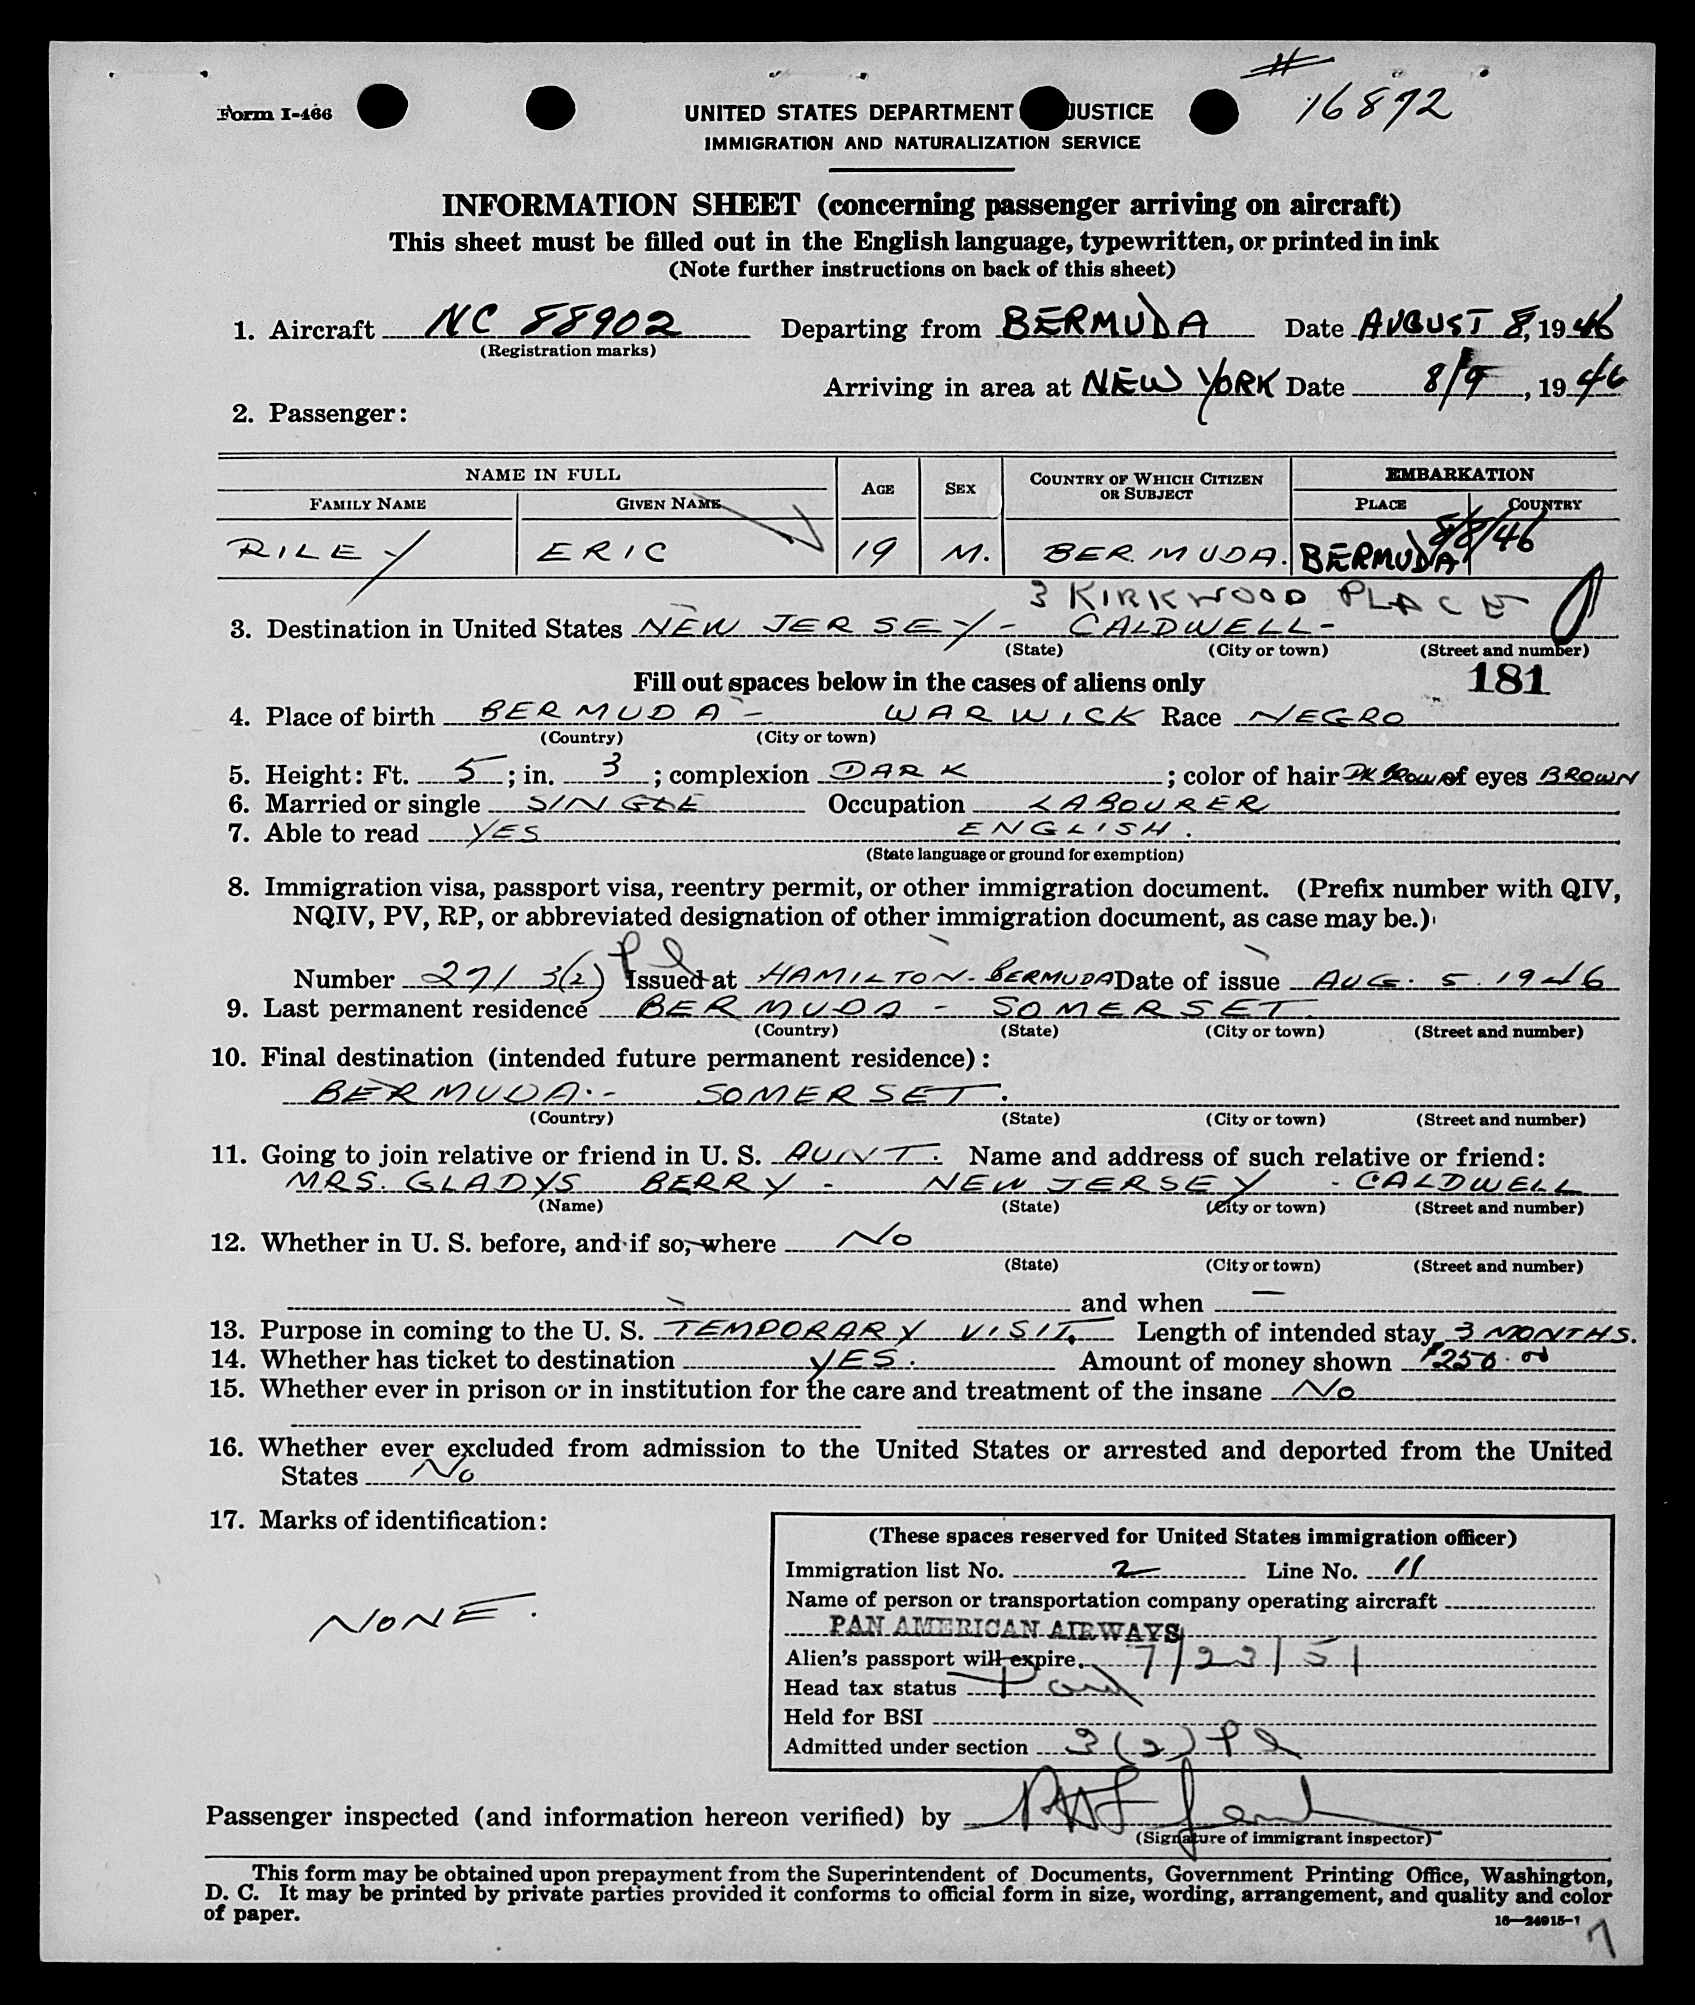 #
16872
Form I-466
UNITED STATES DEPARTMENT JUSTICE
IMMIGRATION AND NATURALIZATION SERVICE
INFORMATION SHEET (concerning passenger arriving on aircraft)
This sheet must be filled out in the English language, typewritten, or printed in ink
(Note further instructions on back of this sheet)
1. Aircraft NC 88902 Departing from BERMUDA Date AUGUST 8, 1946
(Registration marks)
Arriving in area at NEW YORK Date 8/9, 1946
2. Passenger:
NAME IN FULL AGE SEX COUNTRY OF WHICH CITIZEN OR SUBJECT EMBARKATION
FAMILY NAME GIVEN NAME PLACE COUNTRY
8/8/46
RILEY ERIC 19 M. BERMUDA. BERMUDA
3 KIRKWOOD PLACE
3. Destination in United States NEW JERSEY - CALDWELL -
(State) (City or town) (Street and number)
Fill out spaces below in the cases of aliens only 181
4. Place of birth BERMUDA - WARWICK Race NEGRO
(Country) (City or town)
5. Height: Ft. 5; in. 3; complexion DARK; color of hair DK BROWN of eyes BROWN
6. Married or single SINGLE Occupation LABOURER
7. Able to read YES ENGLISH.
(State language or ground for exemption)
8. Immigration visa, passport visa, reentry permit, or other immigration document. (Prefix number with QIV,
NQIV, PV, RP, or abbreviated designation of other immigration document, as case may be.)
Number 271 3(2) Pl Issued at HAMILTON - BERMUDA Date of issue AUG. 5. 1946
9. Last permanent residence BERMUDA - SOMERSET.
(Country) (State) (City or town) (Street and number)
10. Final destination (intended future permanent residence):
BERMUDA. - SOMERSET.
(Country) (State) (City or town) (Street and number)
11. Going to join relative or friend in U. S. AUNT. Name and address of such relative or friend:
MRS. GLADYS BERRY - NEW JERSEY - CALDWELL
(Name) (State) (City or town) (Street and number)
12. Whether in U. S. before, and if so, where No
(State) (City or town) (Street and number)
and when —
13. Purpose in coming to the U. S. TEMPORARY VISIT. Length of intended stay 3 MONTHS.
14. Whether has ticket to destination YES. Amount of money shown $250.00
15. Whether ever in prison or in institution for the care and treatment of the insane No
16. Whether ever excluded from admission to the United States or arrested and deported from the United
States No
17. Marks of identification:
NONE.
(These spaces reserved for United States immigration officer)
Immigration list No. 2 Line No. 11
Name of person or transportation company operating aircraft
PAN AMERICAN AIRWAYS
Alien's passport will expire 7/23/51
Head tax status
Held for BSI
Admitted under section 3(2) Pl
Passenger inspected (and information hereon verified) by
(Signature of immigrant inspector)
This form may be obtained upon prepayment from the Superintendent of Documents, Government Printing Office, Washington,
D. C. It may be printed by private parties provided it conforms to official form in size, wording, arrangement, and quality and color
of paper.
16—24915-1
7